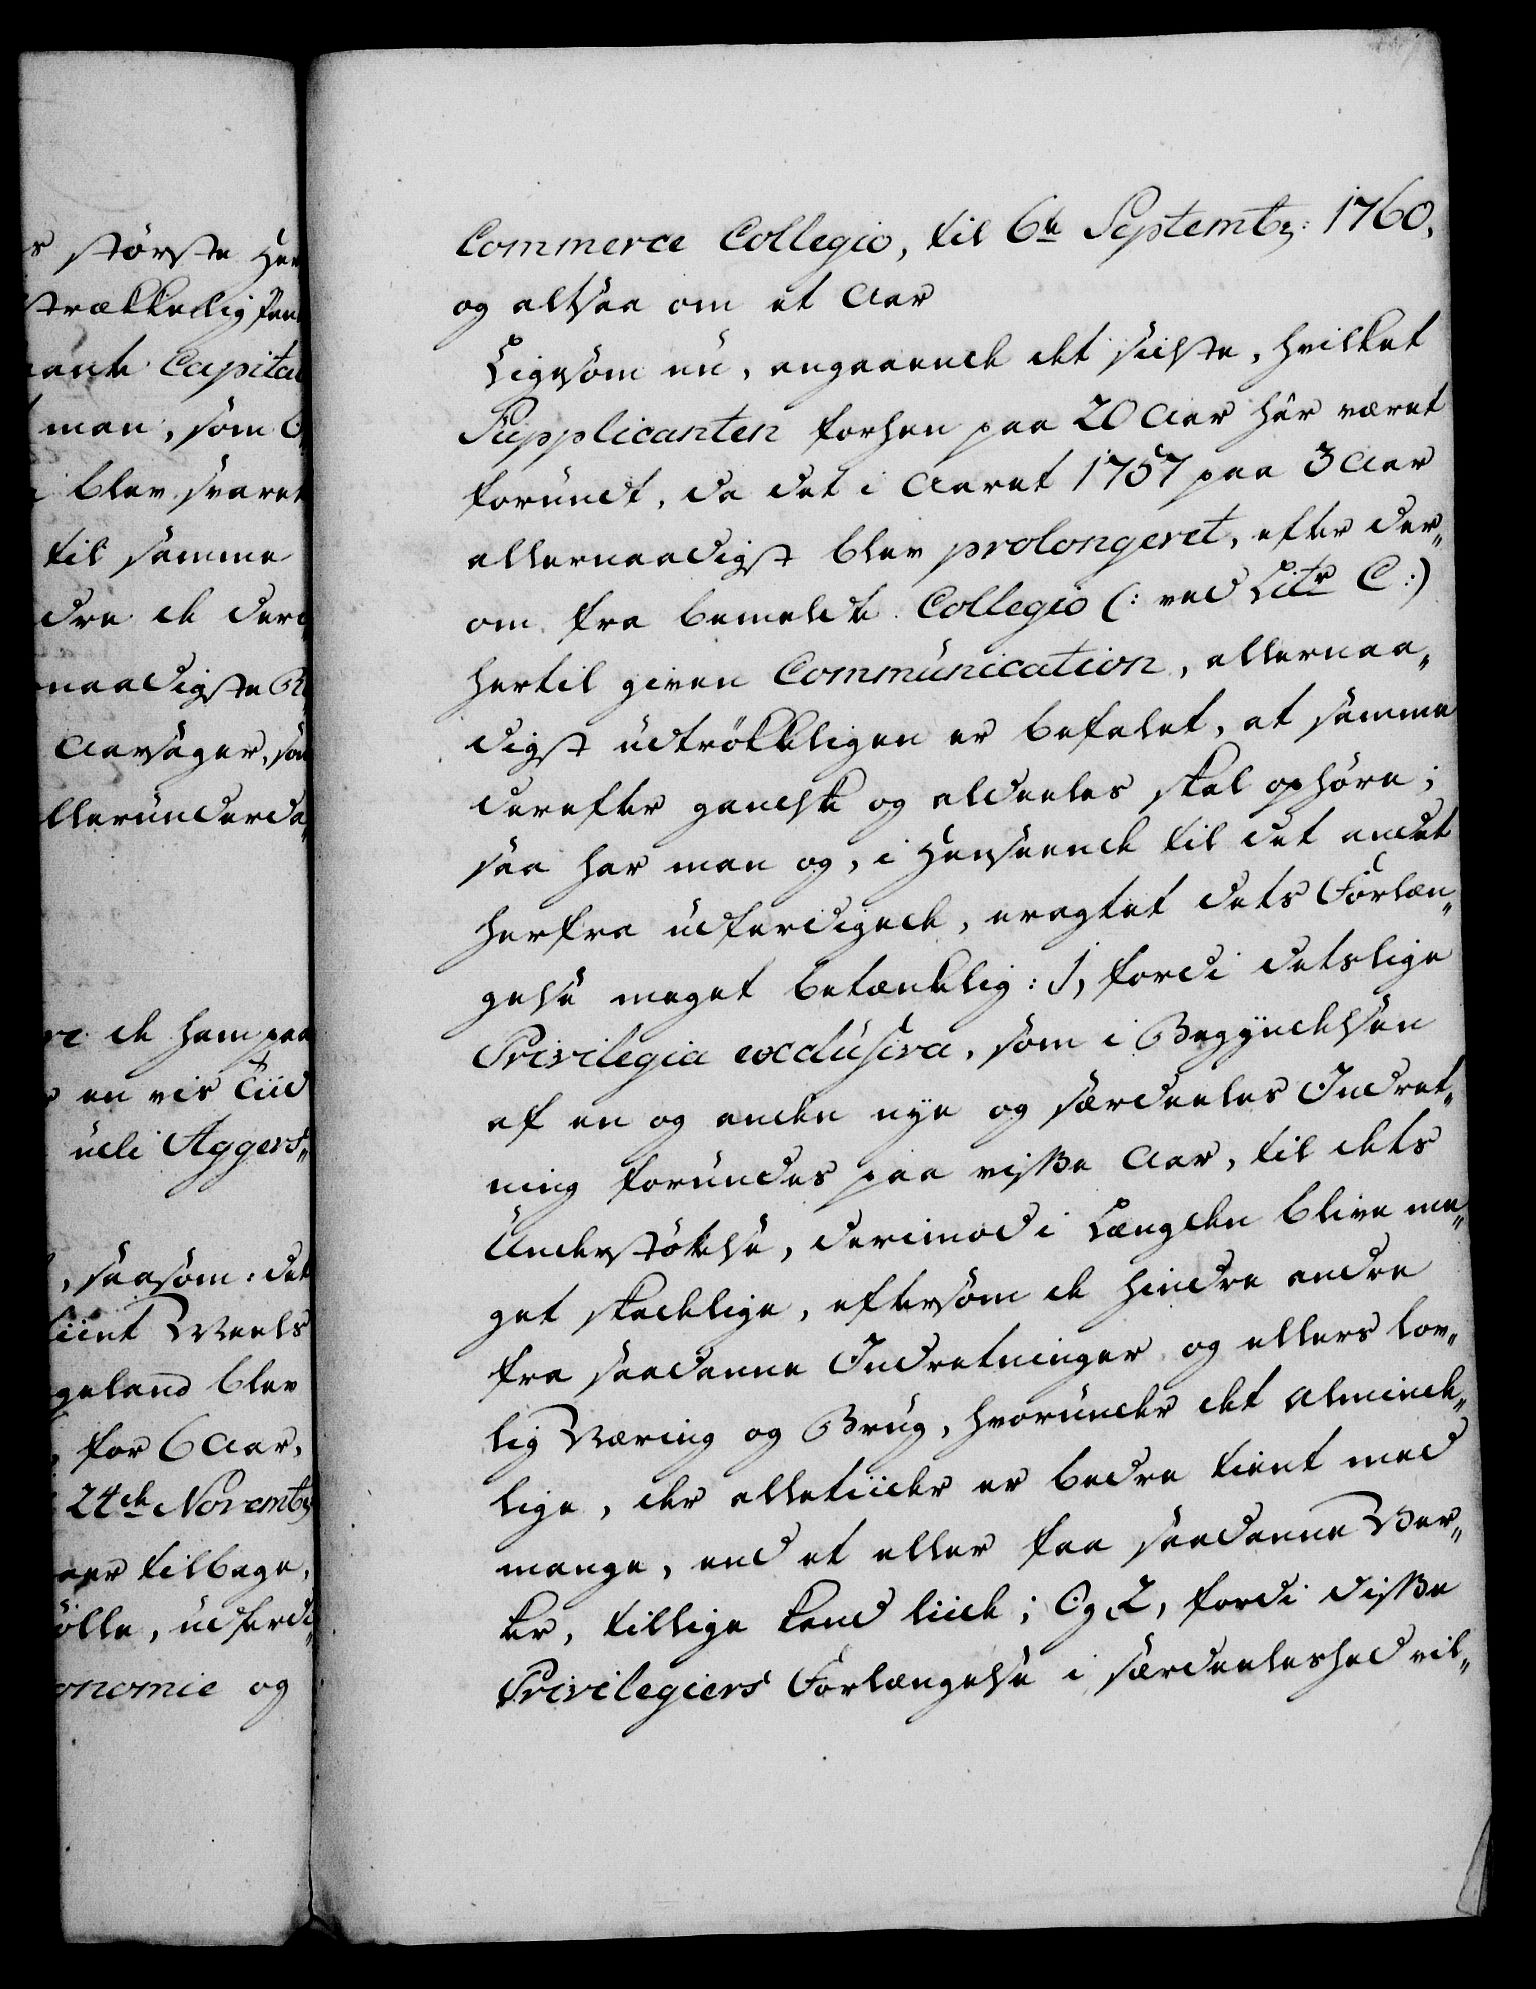 s største Hen
strækkelig pen
capita
man, som
blev svaret
til samme
dre de der
naadigste
Aarsager, som
llerunderda
de ham paa
en vis Tiid
udi Aggers„
, saasom: det
tient Værks
geland blev
for 6 Aar,
24de Novembr
aar tilbage,
ølle, udferdi„
onomie og
Commerce Collegio, til 6te Septembr: 1760,
og altsaa om et Aar
Ligesom nu, angaaende det sidste, hvilket
Supplicanten forhen paa 20 Aar hâr været
forundt, da det i Aaret 1757 paa 3 Aar
allernaadigst blev prolongeret, efter der„
om fra bemeldte Collegio (: ved Litr C:)
hertil given Communication, allernaa„
digst udtrökkeligen er befalet, at samme
derefter gandske og aldeeles skal ophøre;
saa har man og, i Henseende til det andet
herfra udferdigede, eragtet dets Forlæn„
gelse meget betænkelig: 1, fordi detslige
Privilegia exclusiva, som i Begyndelsen
af en og anden nye og særdeeles Indret„
ning forundes paa visse Aar, til dets
Understøttelse, derimod i Længden blive me„
get skadelige, eftersom de hindre andre
fra saadanne Indretninger og ellers lov„
lig Næring og Brug, hvorunder det Alminde„
lige, der alletiider er bedre tient med
mange, end et eller faa saadanne Ver„
ker, tillige kand liide; Og 2, fordi disse
Privilegiers Forlængelse i særdeeleshed vil„